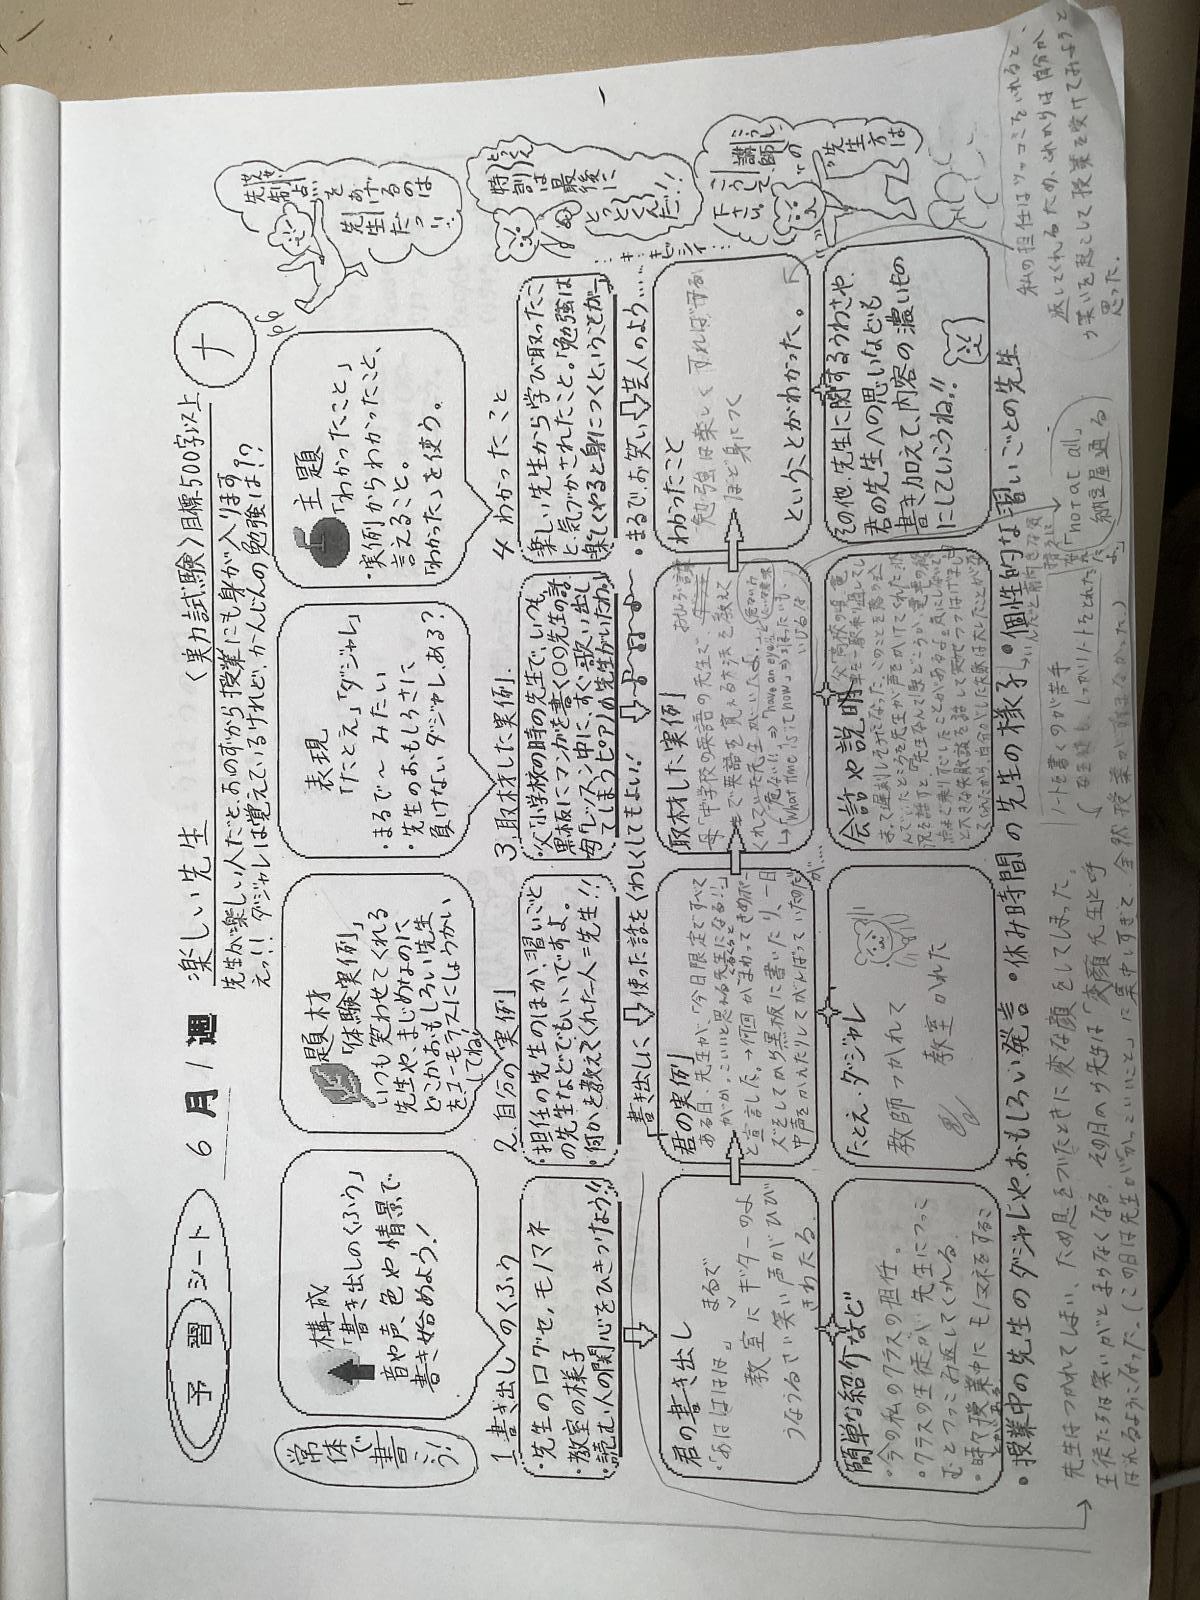 予習シート
6月1週
楽しい先生
〈実力試験〉目標500字以上
ナ
先生が楽しい人だと、おのずから授業にも身が入ります
えっ!! ダジャレは覚えているけれど、かんじんの勉強は!?
常体で書こう!
構成
「書き出しのくふう」
音や声、色や情景で
書き始めよう!
題材
「体験実例」
いつも笑わせてくれる
先生や、まじめなのに
どこかおもしろい先生
をユーモラスにしょうかい
してね!
表現
「たとえ」「ダジャレ」
・まるで~みたい
・先生のおもしろさに
負けないダジャレ、ある?
主題
「わかったこと」
・実例からわかったこと、
言えること。
「わかった」を使う。
先制点をあげるのは先生だっ!!
1.書き出しのくふう
・先生の口グセ、モノマネ
・教室の様子
・読む人の関心をひきつけよう!!
2.自分の実例
・担任の先生のほか、習いごと
の先生などでもいいですよ。
・何かを教えてくれた人=先生!!
3.取材した実例
・父「小学校の時の先生で、いつも
黒板にマンガを書く〇〇先生の話
・母「レッスン中に、すぐ歌い出し
てしまうピアノの先生がいたわ。」
4.わかったこと
楽しい先生から学び取ったこ
と、気づかされたこと。「勉強は
楽しくやると身につくということが」
特訓は最後にとっとくんだ!!
書き出しに
使った話をくわしくしてもよい!
・まるで、お笑い芸人のよう……
君の書き出し
・「あはははは」 まるで
教室にギターのよ
うなうるさい笑い声がひび
きわたる
君の実例
ある日、先生が、「今日限定ですべて
がかっこいいと思える先生になる!!」
と宣言した。→何回かまわってきめポー
ズをしてから黒板に書いたり、一日
中声をかえたりしてがんばっていたのだ
が、…
取材した実例
母「中学校の英語の先生で、
で英語を覚える方法を教えて
くれていた先生がいたよ。」
→「危ない!!⇒「have an eye」
「What time is it now」⇒ほったいも
いじるな
わかったこと
勉強は楽しくすればするほど身につく
ということがわかった。
講師のこうして下さい。
先生方は
簡単な紹介など
・今の私のクラスの担任。
・クラスの生徒が、先生につっこ
むとつっこみ返してくれる。
・時々授業中にモノマネをするこ
とがある
たとえ・ダジャレ
教師つかれて
教室かれた
会話や説明
その他、先生に関するうわさや、
君の先生への思いなども
書き加えて、内容の濃いもの
にしていこうね!!
・授業中の先生のダジャレや、おもしろい発言 ・休み時間の先生の様子 ・個性的な習いごとの先生
先生はつかれてしまい、ため息をついたときに変な顔をしてしまった。
生徒たちは笑いがとまらなくなる。その日から先生は「変顔先生」と呼
ばれるようになった。(この日は先生が「かっこいいこと」に集中しすぎて、全然授業が進まなかった。)
ノートを書くのが苦手
な生徒も、しっかりノートをとれた
「not at all」
納豆屋通る
私の担任はツッコミをいれると、
返してくれるため、これからは自分か
ら笑いを起こして授業を受けてみようと
思った。